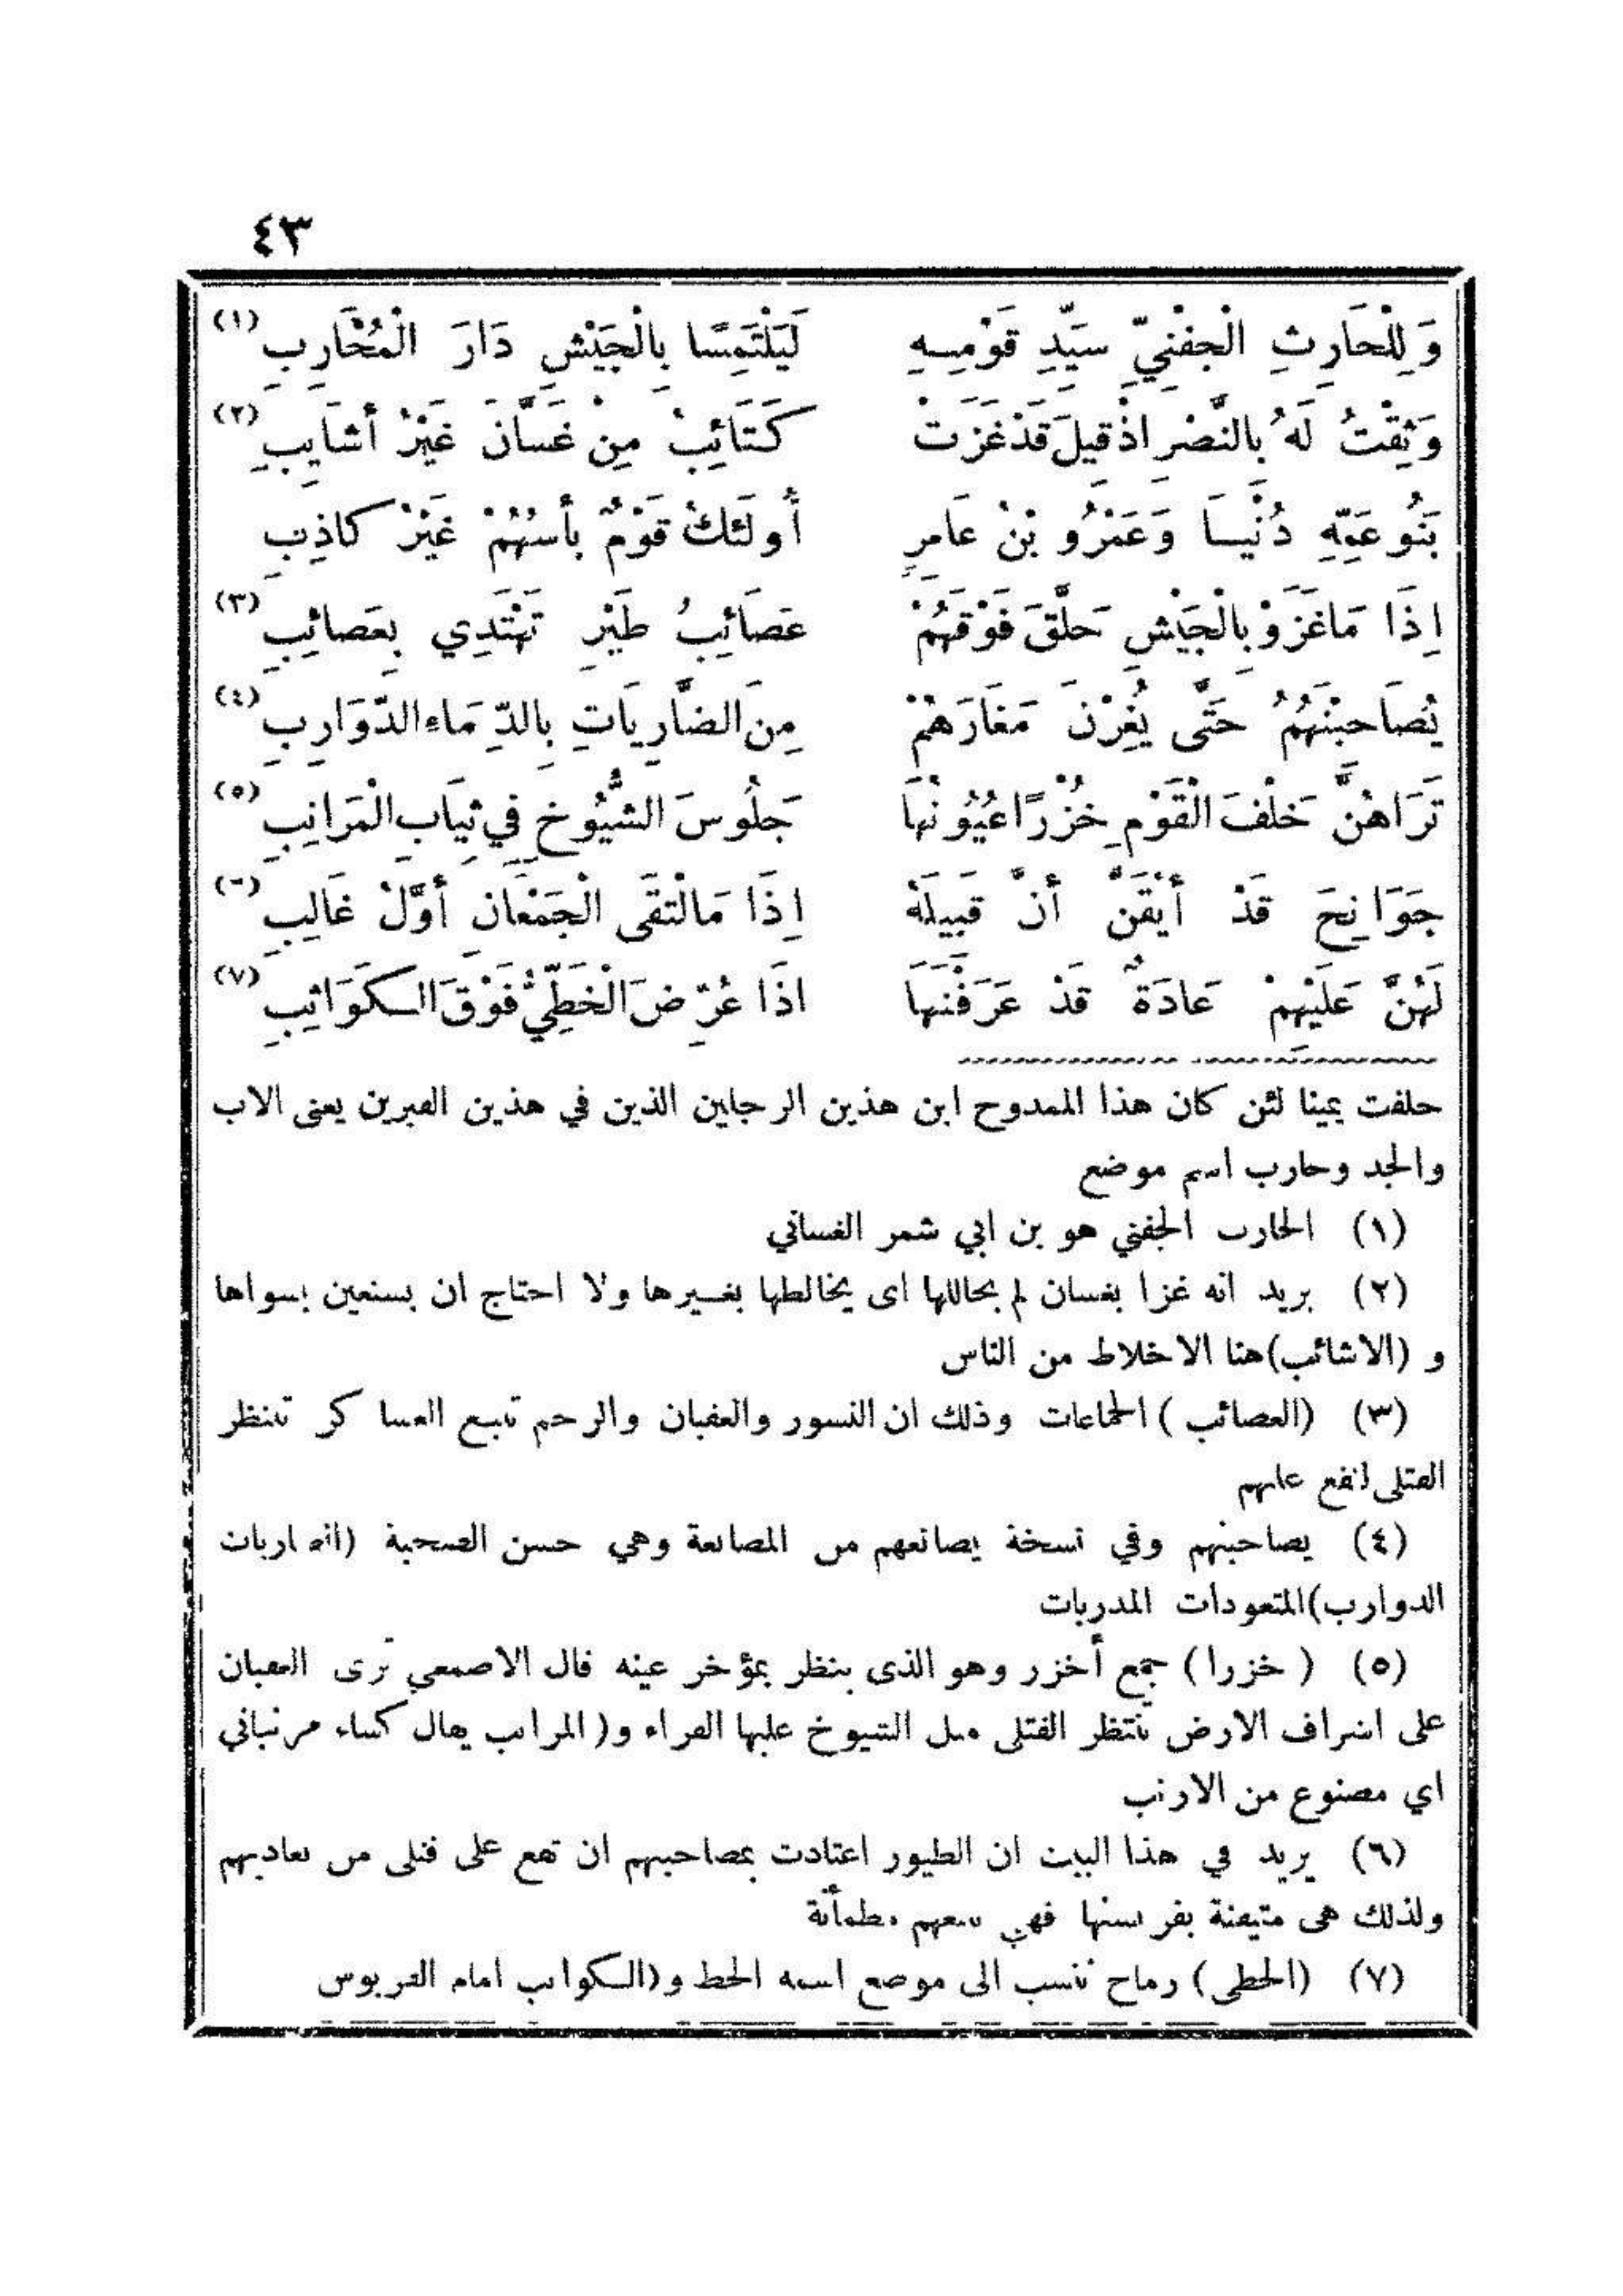 ٤٣
وَلِلْحَارِثِ الْجفْنِيِّ سَيِّدِ قَوْمِهِ لَيَلْتَمِسًا بِالْجَيْشِ دَارَ الْمُحَارِبِ (١)
وَثِقْتُ لَهُ بِالنَّصْرِ اذْ قيلَ قَدْ غَزَتْ كَتَائِبُ مِنْ غَسَّانَ غَيْرُ أَشَايِبِ (٢)
بَنُو عَمِّهِ دُنْيَا وَعَمْرُو بْنُ عَامِرٍ أُولَئكَ قَوْمٌ بأْسُهُمْ غَيْرُ كاذِبِ
إِذَا مَاغَزَوْ بِالْجَيْشِ حَلَّقَ فَوْقَهُمْ عَصَائِبُ طَيْرٍ تَهْتَدِي بِعَصائِبِ (٣)
يُصَاحِبْنَهُمُ حَتَّى يُغِرْنَ مَغَارَهُمْ مِنَ الضَّارِيَاتِ بِالدِّمَاءِ الدَّوَارِبِ (٤)
تَرَاهُنَّ خَلْفَ الْقَوْمِ خُزْرًا عُيُونُهَا جَلُوسَ الشُّيُوخِ فِي ثِيَابِ الْمَرَانِبِ (٥)
جَوَانِحَ قَدْ أَيْقَنَّ أَنَّ قَبِيلَهُ إِذَا مَالْتَقَى الْجَمْعَانِ أَوَّلُ غَالِبِ (٦)
لَهُنَّ عَلَيْهِمْ عَادَةٌ قَدْ عَرَفْنَهَا اذَا عُرِّضَ الْخَطِّيُّ فَوْقَ الكَوَاثِبِ (٧)
حلفت يمينا لئن كان هذا الممدوح ابن هذين الرجلين الذين في هذين القبرين يعنى الاب
والجد وحارب اسم موضع
(١) الحارب الجفني هو بن ابي شمر الغساني
(٢) يريد انه غزا بغسان لم يحاللها اى يخالطها بغيرها ولا احتاج ان يستعين بسواها
و (الاشائب) هنا الاخلاط من الناس
(٣) (العصائب) الجماعات وذلك ان النسور والعقبان والرحم تتبع العساكر تنتظر
القتلى لتقع عليهم
(٤) يصاحبنهم وفي نسخة يصانعهم من المصانعة وهي حسن الصحبة (الضاربات
الدوارب) المتعودات المدربات
(٥) (خزرا) جمع أخزر وهو الذى ينظر بمؤخر عينه قال الاصمعي ترى العقبان
على اشراف الارض تنتظر القتلى مثل الشيوخ عليها الفراء و(المرانب يقال كساء مرنباني
اي مصنوع من الارنب
(٦) يريد في هذا البيت ان الطيور اعتادت بمصاحبتهم ان تقع على قتلى من يعاديهم
ولذلك هى متيقنة بفريستها فهي تتبعهم مطمأنة
(٧) (الخطى) رماح تنسب الى موضع اسمه الخط و(الكواثب امام القربوس